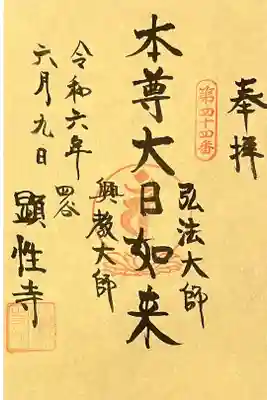 奉拝
第四十四番
弘法大師
本尊大日如来
興教大師
四谷
顕性寺
令和六年
六月九日